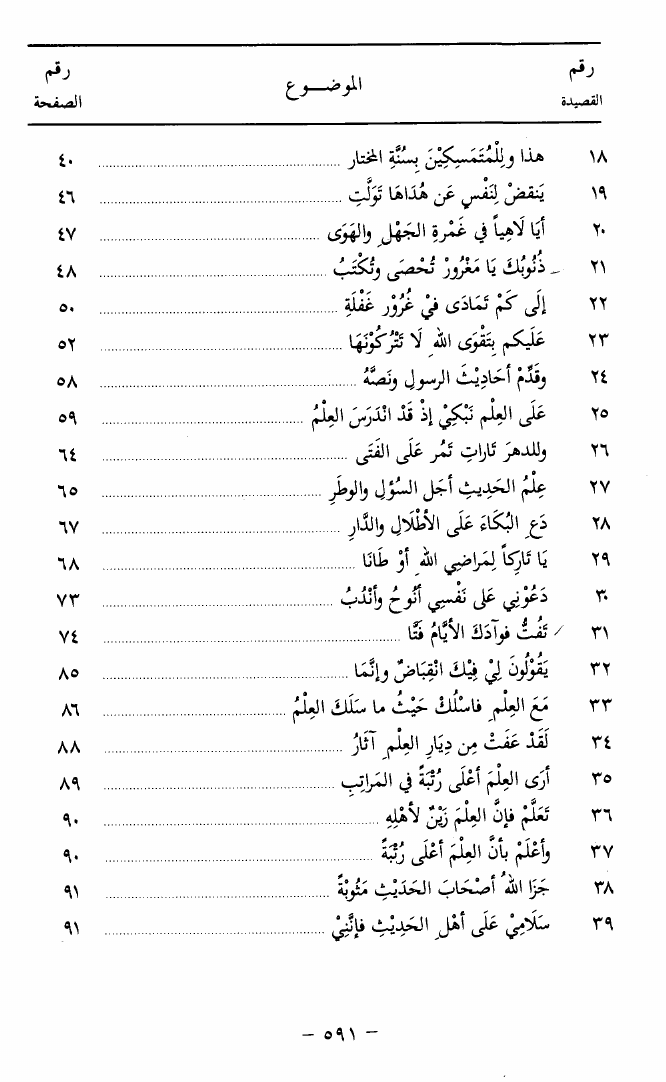 رقم القصيدة الموضـــوع رقم الصفحة
١٨ هذا ولِلْمُتَمَسِكِيْنَ بِسُنَّةِ المختار ٤٠
١٩ يَنقضْ لِنَفْسٍ عَن هُدَاهَا تَوَلَّتِ ٤٦
٢٠ أيَا لَاهِياً في غَمْرةِ الجَهْلِ والهَوَى ٤٧
٢١ ذُنُوبُكَ يَا مَغْرُورْ تُحْصَى وتُكْتَبُ ٤٨
٢٢ إلَى كَمْ تَمَادَى فيْ غُرُوْر غَفْلَةِ ٥٠
٢٣ عَلَيكم بِتَقْوَى اللهِ لَا تَتْرُكُوْنَهَا ٥٢
٢٤ وقَدِّمْ أحَادِيْثَ الرسولِ ونَصَّهُ ٥٨
٢٥ عَلَى العِلْم نَبْكِيْ إذْ قَدْ انْدَرَسَ العِلْمُ ٥٩
٢٦ وللدهرَ تَاراتِ تَمُر عَلَى الفَتَى ٦٤
٢٧ عِلْمُ الحَدِيثِ أجَل السُؤْلِ والوطَرِ ٦٥
٢٨ دَع البُكَاءَ عَلَى الأطْلَالِ والدَّارِ ٦٧
٢٩ يَا تَارِكاً لِمَراضِي اللهِ أوْ طَانَا ٦٨
٣٠ دَعُوْنِي عَلى نَفْسِي أنُوحُ وأنْدُبُ ٧٣
٣١ تَفُتُّ فوآدَكَ الأيَّامُ فَتَّا ٧٤
٣٢ يَقُوْلُونَ لِيْ فِيْكَ انْقِبَاضٌ وإنَّمَا ٨٥
٣٣ مَعَ العِلْمِ فاسْلُكْ حَيْثُ ما سَلَكَ العِلْمُ ٨٦
٣٤ لَقَدْ عَفَتْ مِن دِيَارِ العِلْمِ آثَارُ ٨٨
٣٥ أرَى العِلْمَ أعْلَى رُتْبَةً في المَراتِبِ ٨٩
٣٦ تَعَلَّمْ فإنَّ العِلْمَ زَيْنٌ لأهْلِهِ ٩٠
٣٧ وأعْلَمْ بأنَّ العِلْمَ أعْلَى رُتْبَةً ٩٠
٣٨ جَزَا اللهُ أصْحَابَ الحَدَيْثِ مَثُوبَةً ٩١
٣٩ سَلَامِيْ عَلَى أهْلِ الحَدِيْثِ فإنَّنِيْ ٩١
– ٥٩١ –